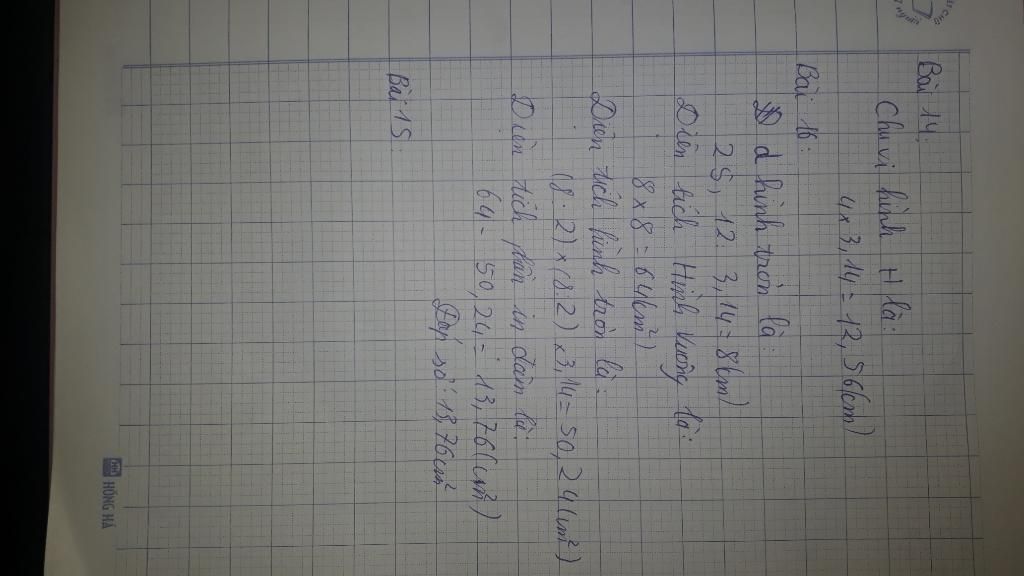 Bài 14:
Chu vi hình H là:
4 x 3,14 = 12,56 (cm)
Bài 16:
d hình tròn là:
25,12 : 3,14 = 8 (cm)
Diện tích Hình vuông là:
8 x 8 = 64 (cm²)
Diện tích hình tròn là:
(8 : 2) x (8 : 2) x 3,14 = 50,24 (cm²)
Diện tích phần in đậm là:
64 - 50,24 = 13,76 (cm²)
Đáp số 13,76 cm²
Bài 15:
HỒNG HÀ